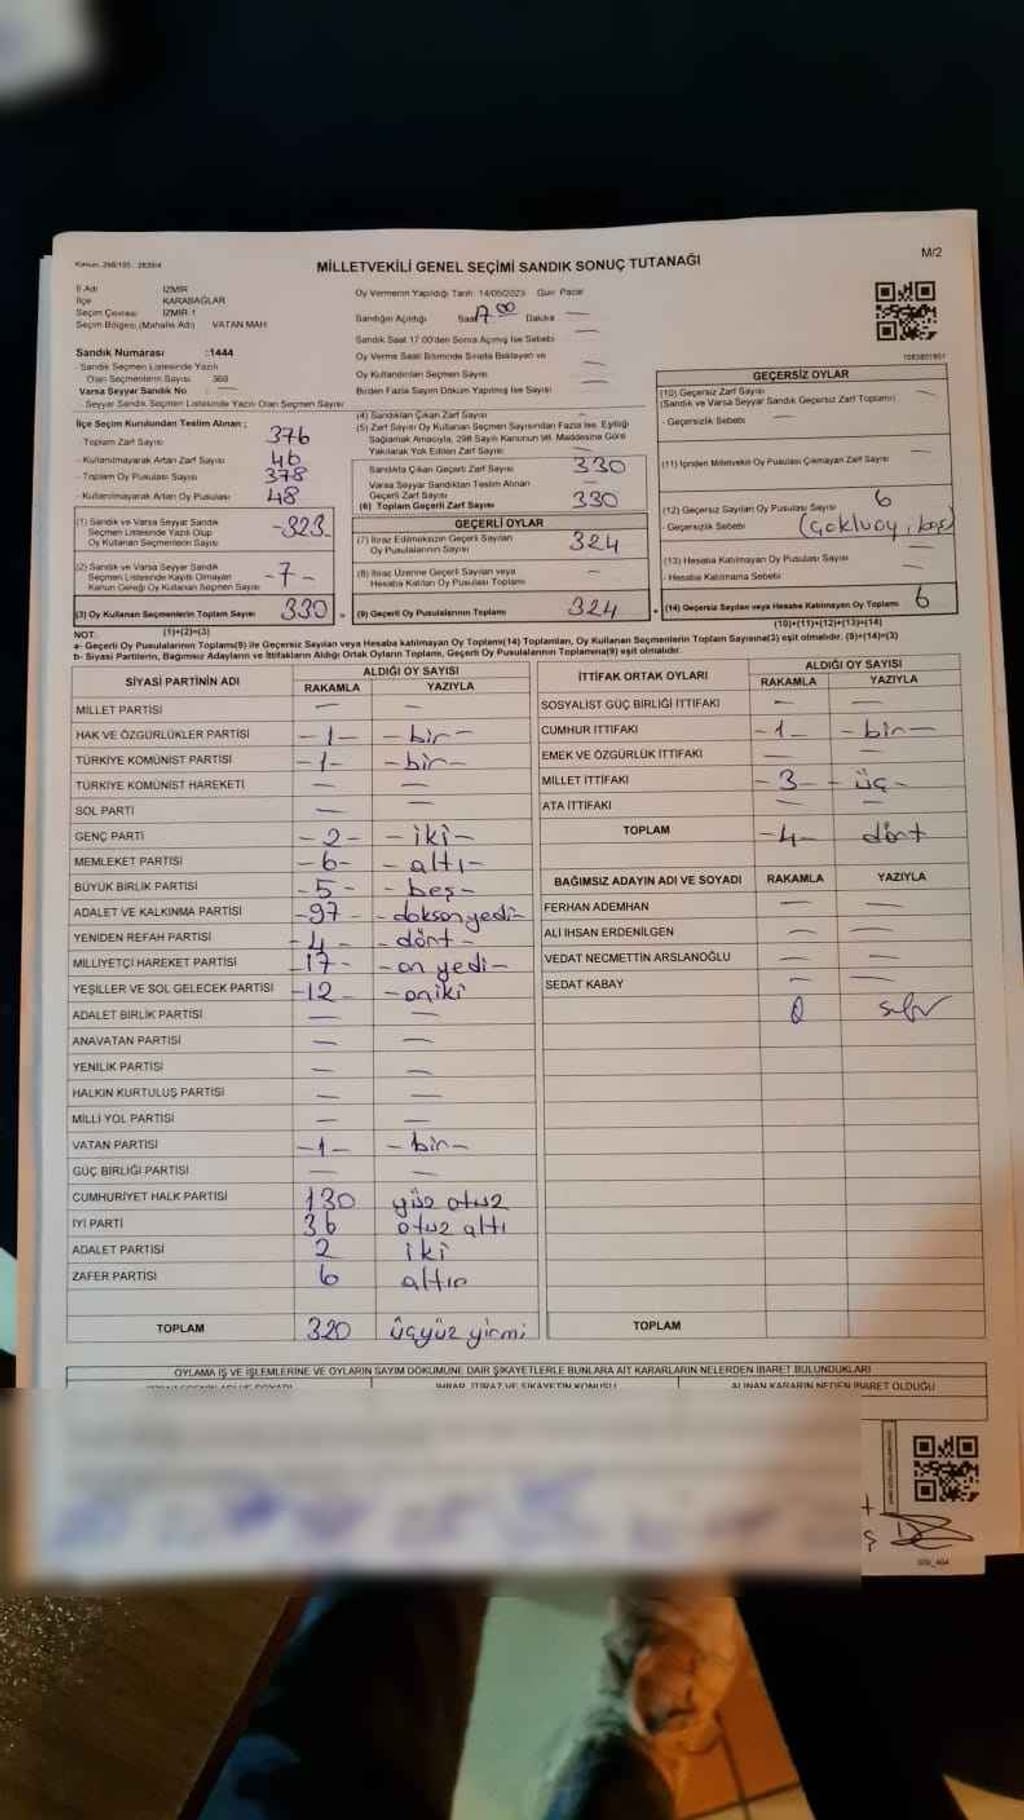 M/2
MİLLETVEKİLİ GENEL SEÇİMİ SANDIK SONUÇ TUTANAĞI
İl Adı İZMİR
İlçe KARABAĞLAR
Seçim Çevresi İZMİR 1
Seçim Bölgesi (Mahalle Adı) VATAN MAH.
Sandık Numarası :1444
Sandık Seçmen Listesinde Yazılı
Olan Seçmenlerin Sayısı 369
Varsa Seyyar Sandık No
Seyyar Sandık Seçmen Listesinde Yazılı Olan Seçmen Sayısı
Oy Vermenin Yapıldığı Tarih: 14/05/2023 Gün: Pazar
Sandığın Açıldığı Saat 17.00 Dakika —
Sandık Saat 17.00'den Sonra Açılmış İse Sebebi —
Oy Verme Saati Bitiminde Sırada Bekleyen ve
Oy Kullandırılan Seçmen Sayısı —
Birden Fazla Sayım Döküm Yapılmış İse Sayısı —
İlçe Seçim Kurulundan Teslim Alınan ;
Toplam Zarf Sayısı 376
- Kullanılmayarak Artan Zarf Sayısı 46
- Toplam Oy Pusulası Sayısı 378
- Kullanılmayarak Artan Oy Pusulası 48
(1) Sandık ve Varsa Seyyar Sandık
Seçmen Listesinde Yazılı Olup
Oy Kullanan Seçmenlerin Sayısı -323-
(2) Sandık ve Varsa Seyyar Sandık
Seçmen Listesinde Kayıtlı Olmayan
Kanun Gereği Oy Kullanan Seçmen Sayısı -7-
(3) Oy Kullanan Seçmenlerin Toplam Sayısı 330
(1)+(2)=(3)
(4) Sandıktan Çıkan Zarf Sayısı —
(5) Zarf Sayısı Oy Kullanan Seçmen Sayısından Fazla İse, Eşitliği
Sağlamak Amacıyla, 298 Sayılı Kanunun 98. Maddesine Göre
Yakılarak Yok Edilen Zarf Sayısı —
Sandıkta Çıkan Geçerli Zarf Sayısı 330
Varsa Seyyar Sandıktan Teslim Alınan
Geçerli Zarf Sayısı —
(6) Toplam Geçerli Zarf Sayısı 330
GEÇERLİ OYLAR
(7) İtiraz Edilmeksizin Geçerli Sayılan
Oy Pusulalarının Sayısı 324
(8) İtiraz Üzerine Geçerli Sayılan veya
Hesaba Katılan Oy Pusulası Toplamı —
(9) Geçerli Oy Pusulalarının Toplamı 324
GEÇERSİZ OYLAR
(10) Geçersiz Zarf Sayısı
(Sandık ve Varsa Seyyar Sandık Geçersiz Zarf Toplamı) —
- Geçersizlik Sebebi —
(11) İçinden Milletvekili Oy Pusulası Çıkmayan Zarf Sayısı —
(12) Geçersiz Sayılan Oy Pusulası Sayısı 6
- Geçersizlik Sebebi (Çokluoy, boş)
(13) Hesaba Katılmayan Oy Pusulası Sayısı —
- Hesaba Katılmama Sebebi —
(14) Geçersiz Sayılan veya Hesaba Katılmayan Oy Toplamı 6
(10)+(11)+(12)+(13)=(14)
NOT:
a- Geçerli Oy Pusulalarının Toplamı(9) ile Geçersiz Sayılan veya Hesaba katılmayan Oy Toplamı(14) Toplamları, Oy Kullanan Seçmenlerin Toplam Sayısına(3) eşit olmalıdır. (9)+(14)=(3)
b- Siyasi Partilerin, Bağımsız Adayların ve İttifakların Aldığı Ortak Oyların Toplamı, Geçerli Oy Pusulalarının Toplamına(9) eşit olmalıdır.
SİYASİ PARTİNİN ADI ALDIĞI OY SAYISI
RAKAMLA YAZIYLA
MİLLET PARTİSİ — —
HAK VE ÖZGÜRLÜKLER PARTİSİ -1- -bir-
TÜRKİYE KOMÜNİST PARTİSİ -1- -bir-
TÜRKİYE KOMÜNİST HAREKETİ — —
SOL PARTİ — —
GENÇ PARTİ -2- -iki-
MEMLEKET PARTİSİ -6- -altı-
BÜYÜK BİRLİK PARTİSİ -5- -beş-
ADALET VE KALKINMA PARTİSİ -97- -doksanyedi-
YENİDEN REFAH PARTİSİ -4- -dört-
MİLLİYETÇİ HAREKET PARTİSİ -17- -on yedi-
YEŞİLLER VE SOL GELECEK PARTİSİ -12- -oniki
ADALET BİRLİK PARTİSİ — —
ANAVATAN PARTİSİ — —
YENİLİK PARTİSİ — —
HALKIN KURTULUŞ PARTİSİ — —
MİLLİ YOL PARTİSİ — —
VATAN PARTİSİ -1- -bir-
GÜÇ BİRLİĞİ PARTİSİ — —
CUMHURİYET HALK PARTİSİ 130 yüz otuz
İYİ PARTİ 36 otuz altı
ADALET PARTİSİ 2 iki
ZAFER PARTİSİ 6 altı
TOPLAM 320 üçyüz yirmi
İTTİFAK ORTAK OYLARI ALDIĞI OY SAYISI
RAKAMLA YAZIYLA
SOSYALİST GÜÇ BİRLİĞİ İTTİFAKI — —
CUMHUR İTTİFAKI -1- -bir-
EMEK VE ÖZGÜRLÜK İTTİFAKI — —
MİLLET İTTİFAKI -3- -üç-
ATA İTTİFAKI — —
TOPLAM -4- dört
BAĞIMSIZ ADAYIN ADI VE SOYADI RAKAMLA YAZIYLA
FERHAN ADEMHAN — —
ALİ İHSAN ERDENİLGEN — —
VEDAT NECMETTİN ARSLANOĞLU — —
SEDAT KABAY — —
0 sıfır
TOPLAM
OYLAMA İŞ VE İŞLEMLERİNE VE OYLARIN SAYIM DÖKÜMÜNE DAİR ŞİKAYETLERLE BUNLARA AİT KARARLARIN NELERDEN İBARET BULUNDUKLARI
İHBAR, İTİRAZ VE ŞİKAYETİN KONUSU ALINAN KARARIN NEDEN İBARET OLDUĞU